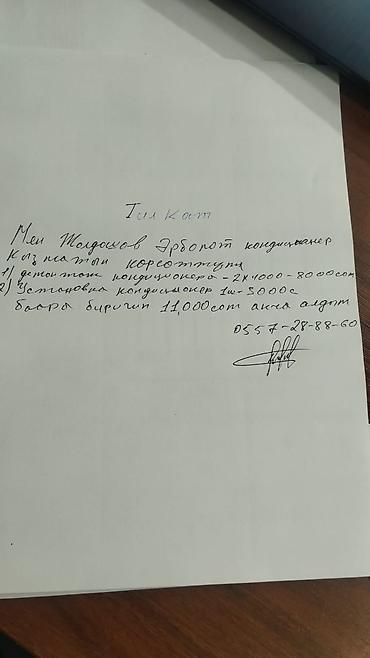 Тил Кат
Мен Жолдошов Эрболот кондиционер
Кызматын корсоттум
1) демонтаж кондиционера - 2х4000 - 8000сом
2) Установка кондиционер 1шт - 3000с
баары биригип 11,000сом акча алдым
0557-28-88-60